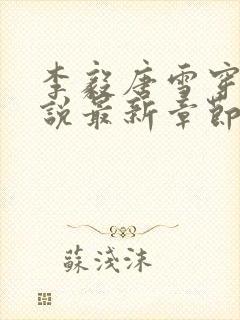 李毅唐雪穿
說最新章節
蘇淺沫